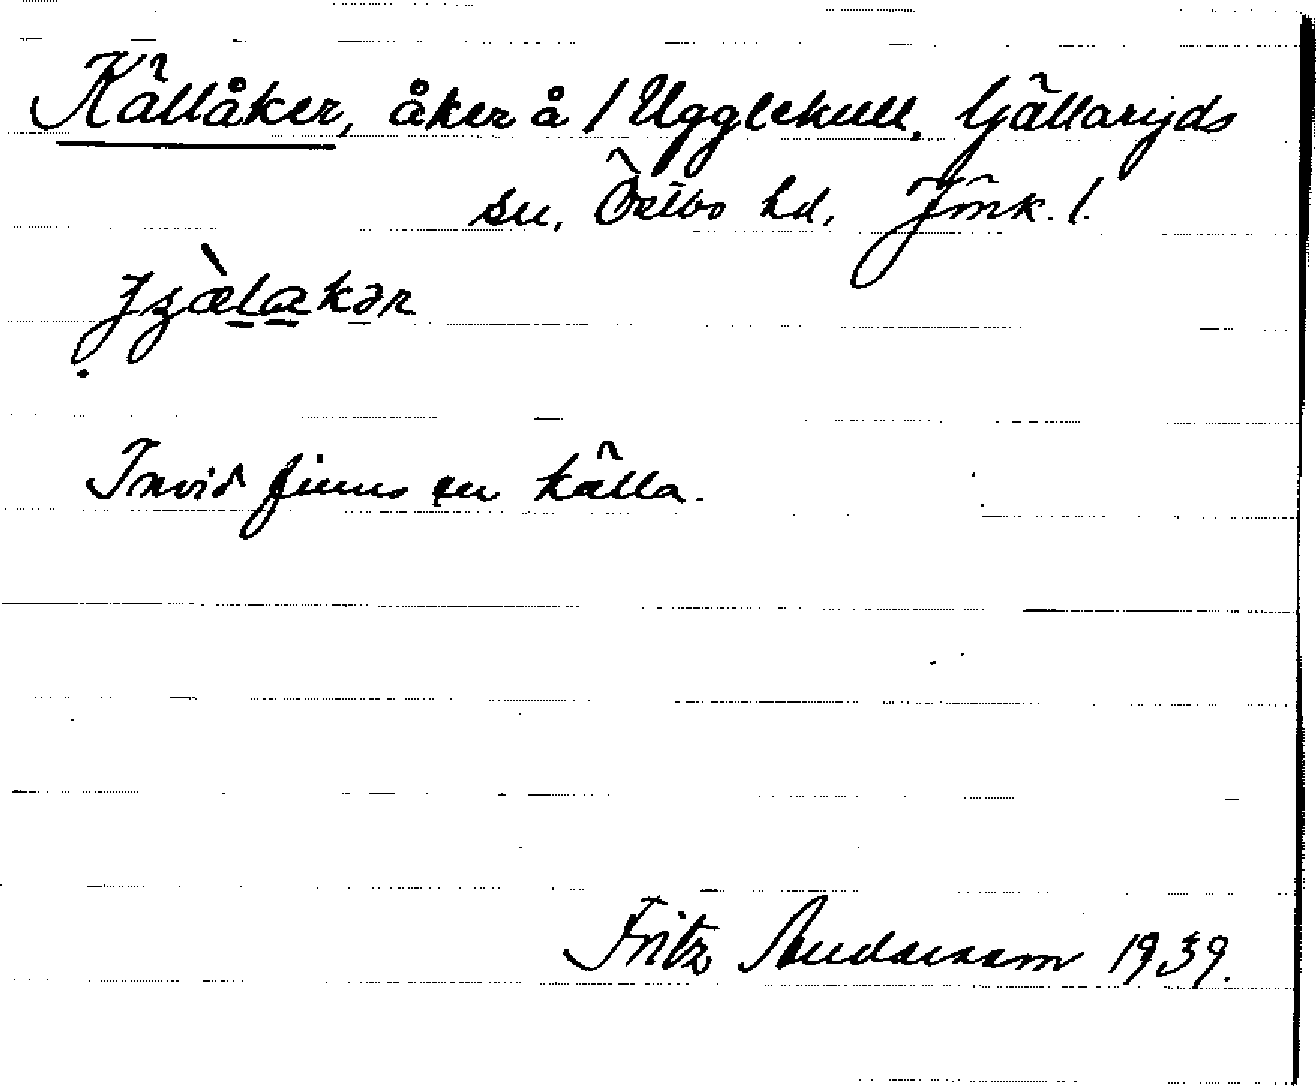 Källåker, åker å 1 Ugglekull, Gällaryds
sn, Östbo hd, Jmk. l.
Invid finns en källa.
Fritz Andersson 1939.